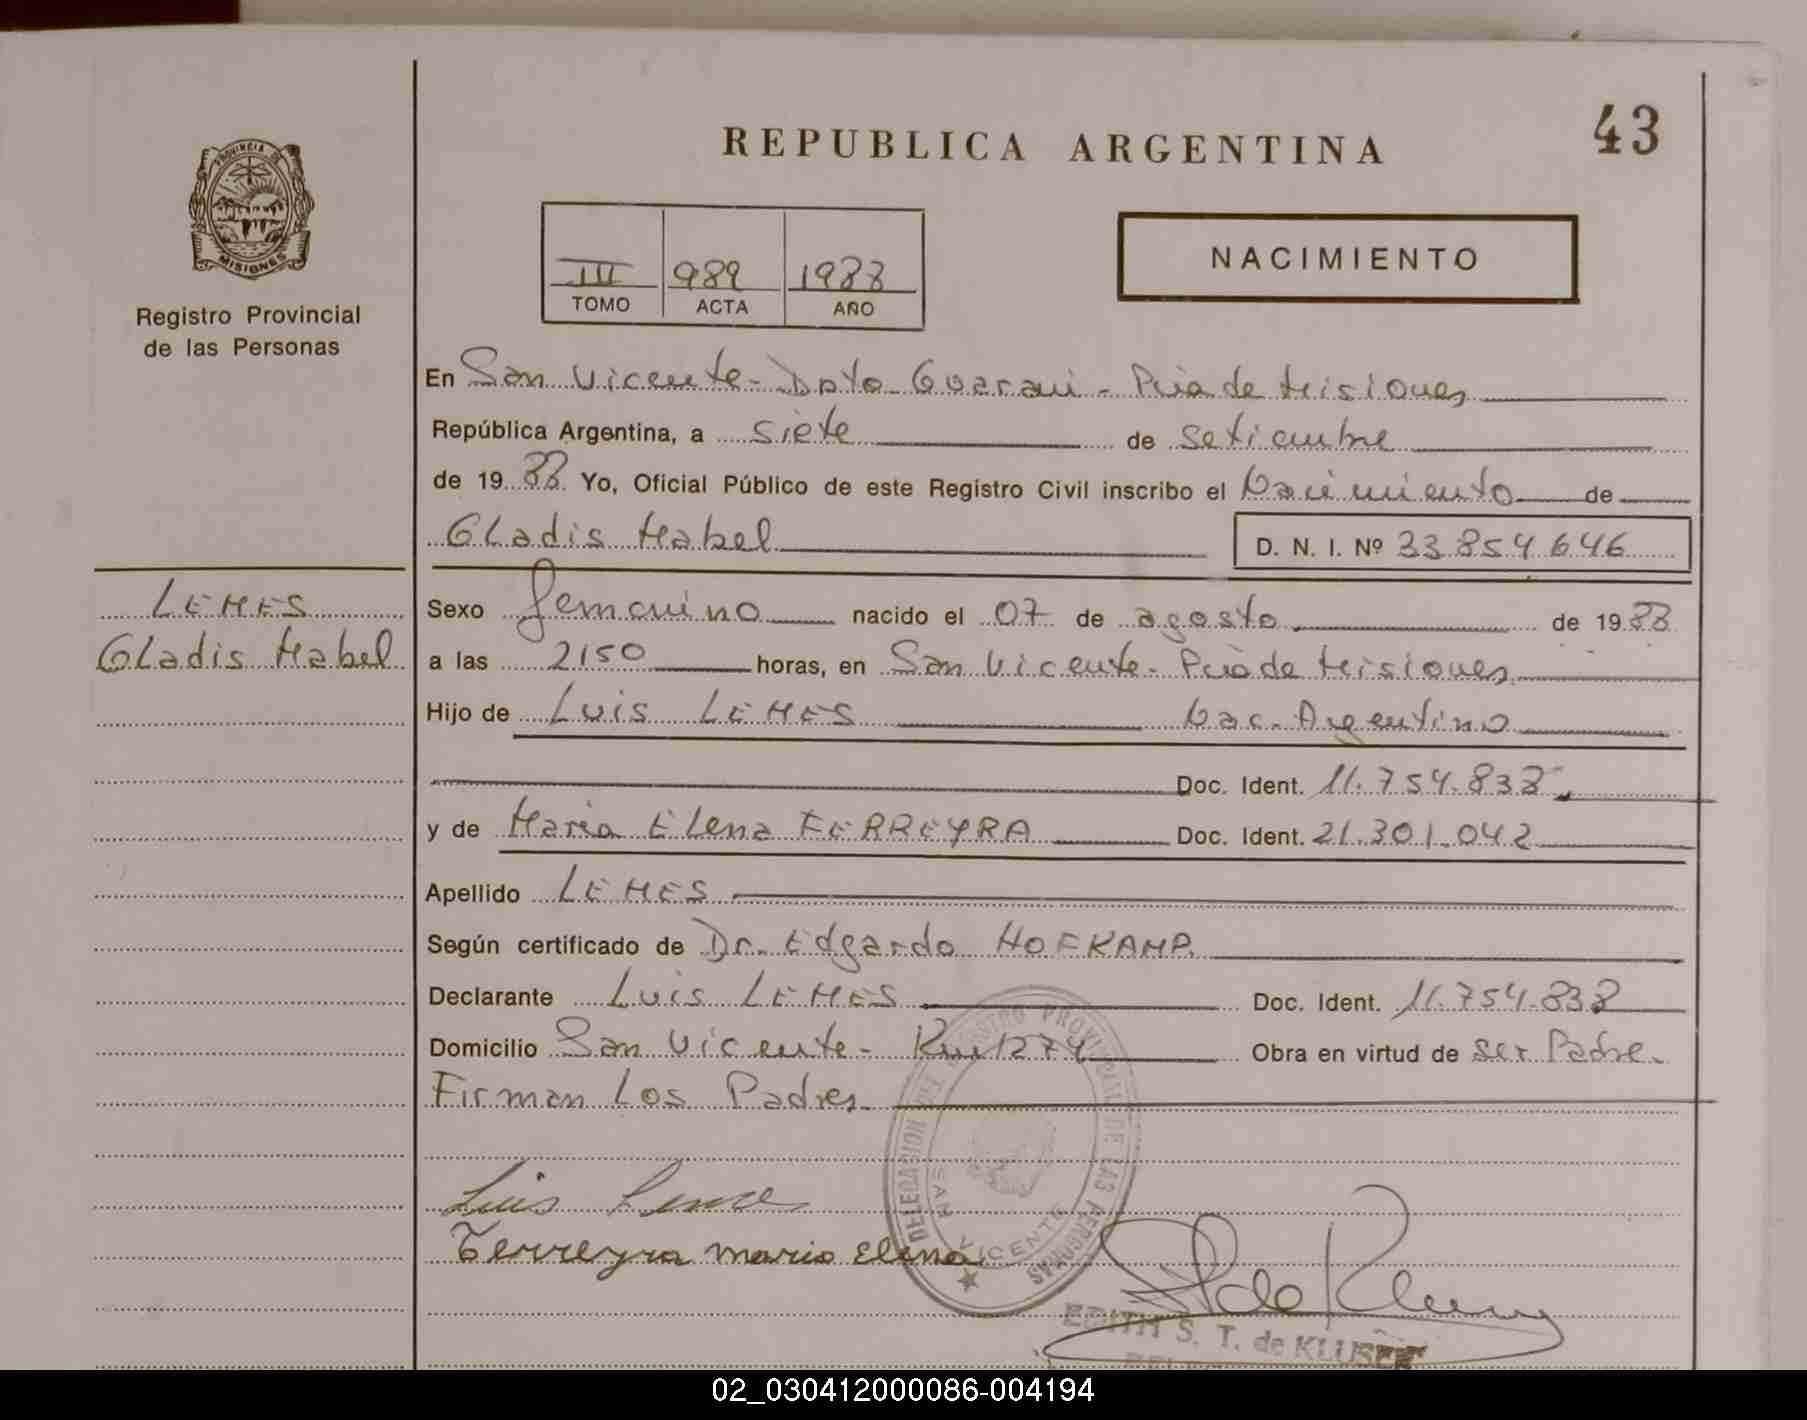 43
REPUBLICA ARGENTINA
PROVINCIA DE
MISIONES
Registro Provincial
de las Personas
III 989 1988
TOMO ACTA AÑO
NACIMIENTO
En San Vicente - Dpto Guarani - Pcia de Misiones
República Argentina, a siete de setiembre
de 19 88 Yo, Oficial Público de este Registro Civil inscribo el Nacimiento de
Gladis Mabel D. N. I. Nº 33 854 646
LEMES
Gladis Mabel
Sexo femenino nacido el 07 de agosto de 19 88
a las 2150 horas, en San Vicente - Pcia de Misiones
Hijo de Luis LEMES Nac. Argentino
Doc. Ident. 11.754.838
y de Maria Elena FERREYRA Doc. Ident. 21.301.042
Apellido LEMES
Según certificado de Dr. Edgardo HOFKAMP.
Declarante Luis LEMES Doc. Ident. 11.754.838
Domicilio San Vicente - Km 1274 Obra en virtud de ser Padre.
Firman Los Padres
DELEGACION DEL REGISTRO PROVINCIAL DE LAS PERSONAS
SAN VICENTE
Luis Leme
Ferreyra maria Elena
EDITH S. T. de KLUSER
02_030412000086-004194